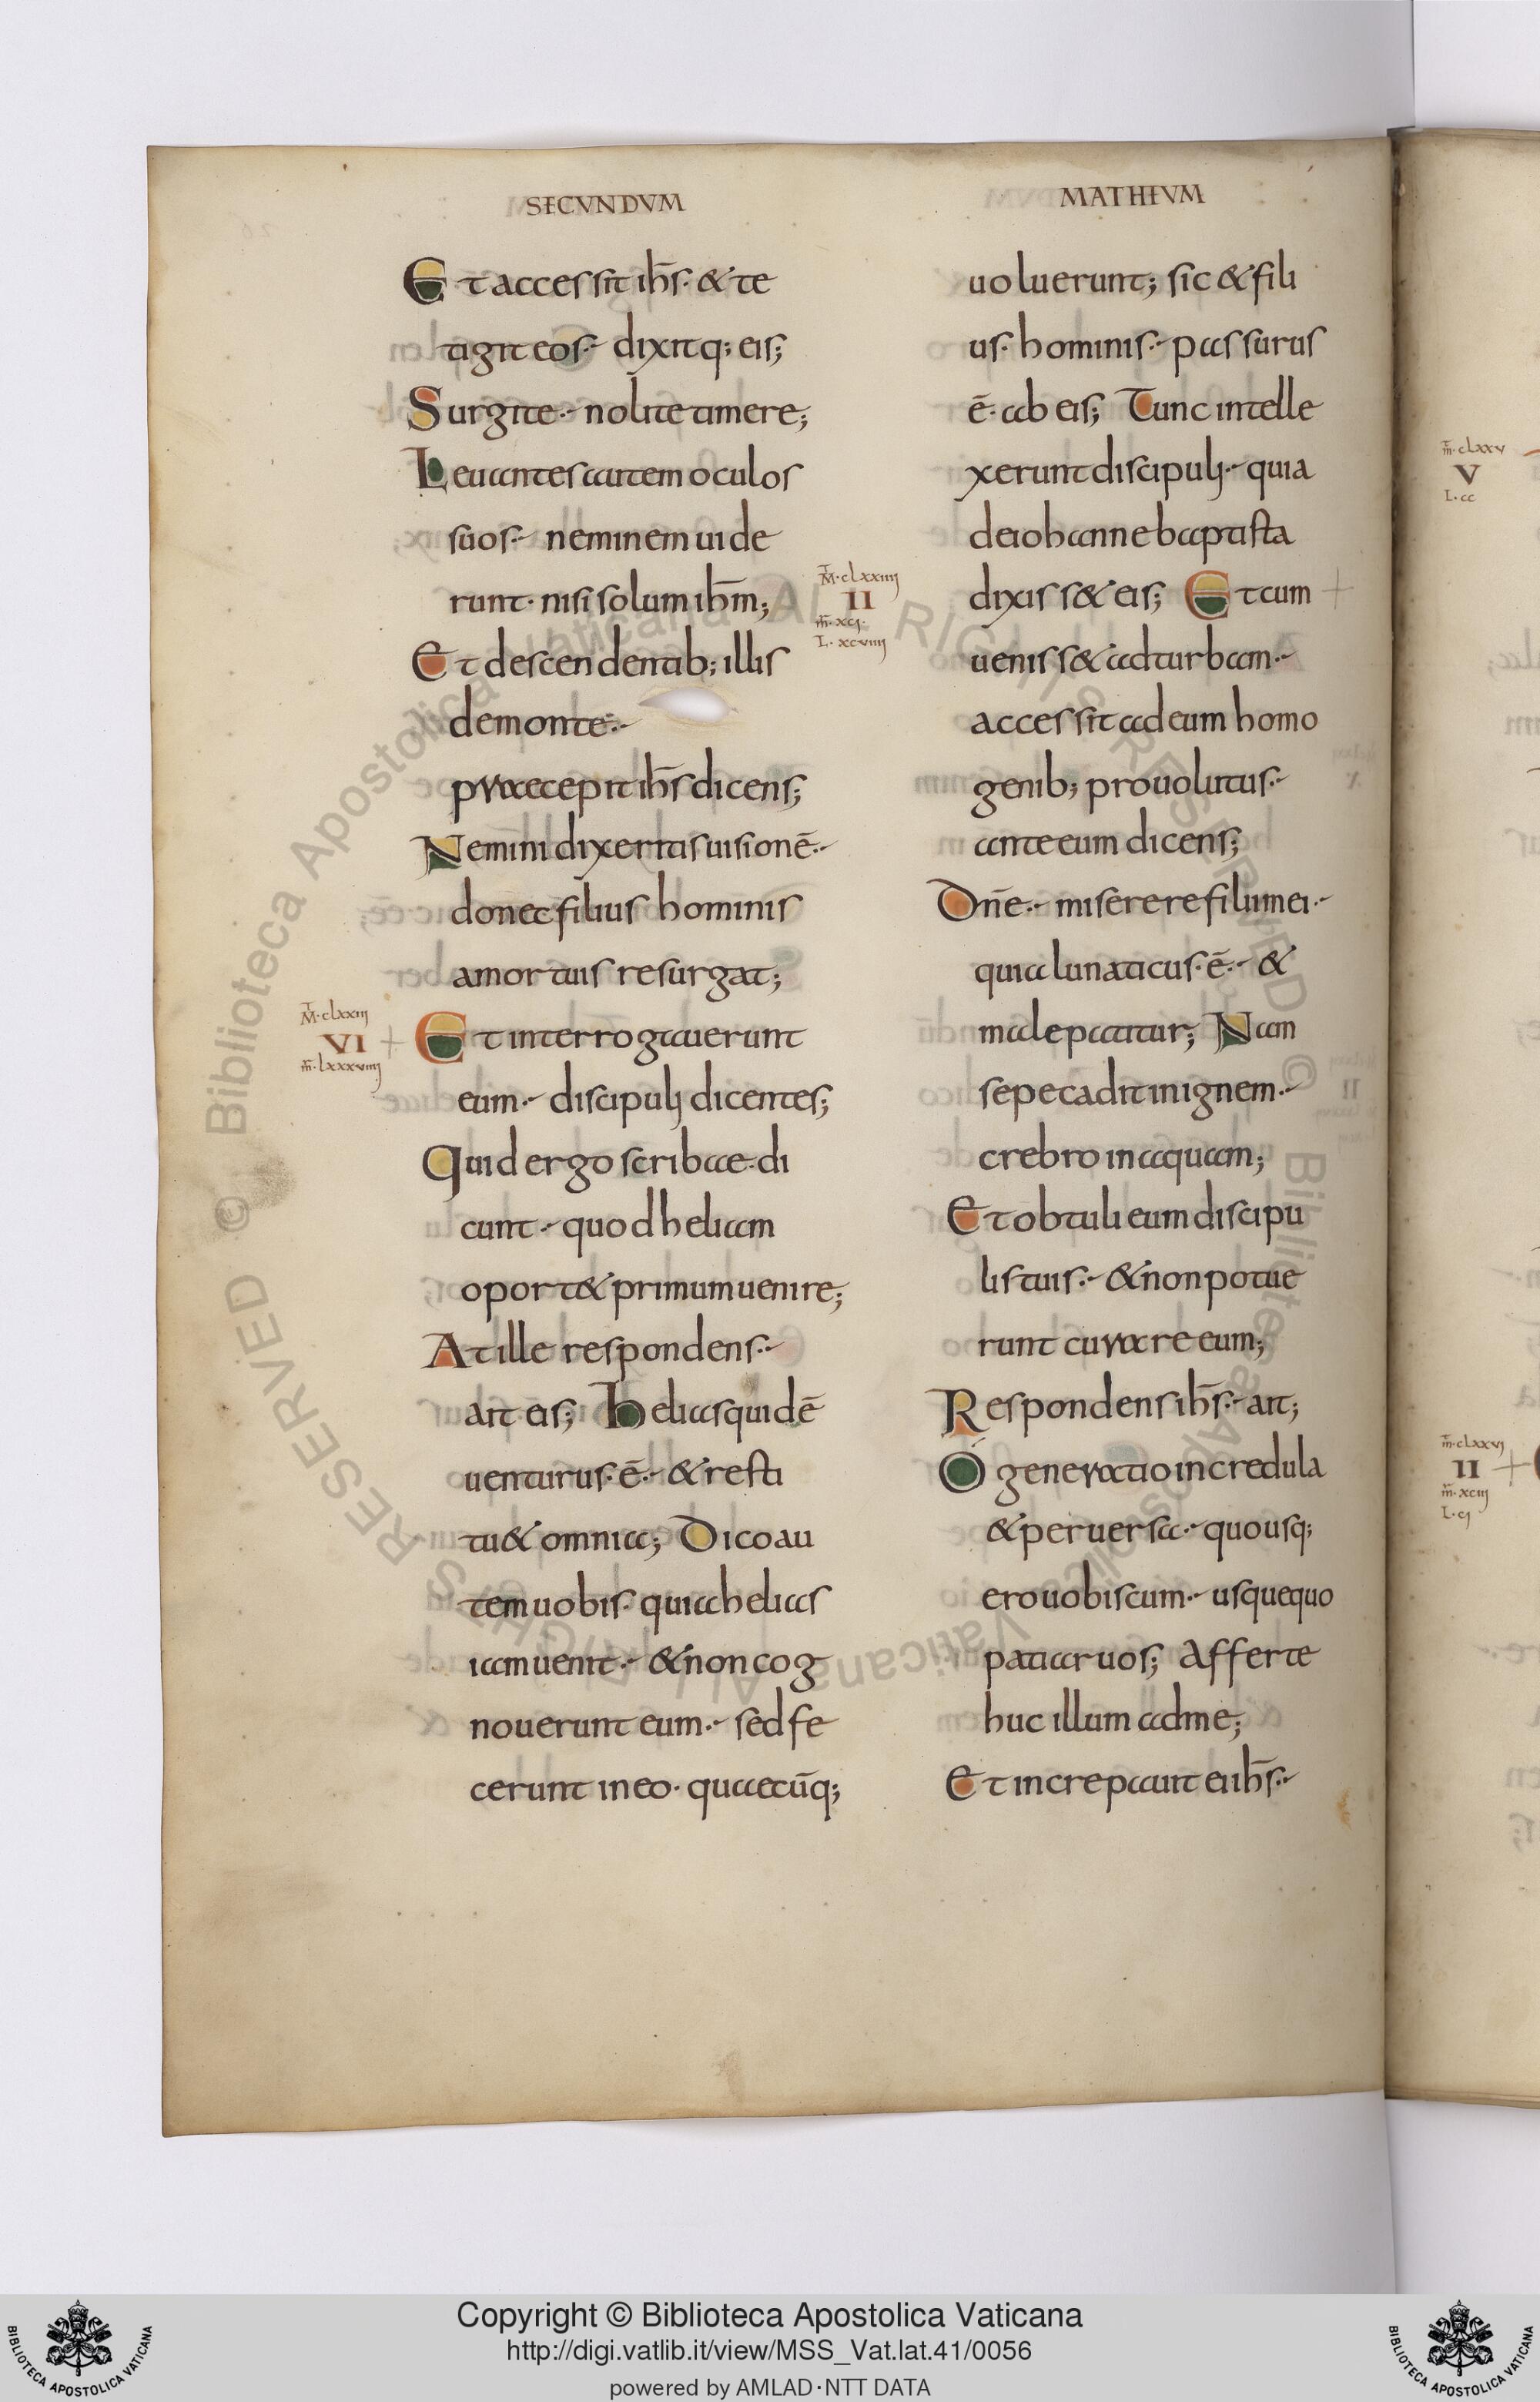 SECVNDVM
Et accessit ih̄s· & te
tigit eos·- dixitq; eis;
Surgite·- nolite timere;
Leuantes autem oculos
suos·- neminem uide
runt· nisi solum ih̄m;
Et descendentib; illis
demonte·-
praecepit ih̄s dicens;
Nemini dixeritis uisionē·-
donec filius hominis
amortuis resurgat;
M·clxxiii
VI
m̄·lxxxviiij
Et interrogauerunt
eum·- discipulj dicentes;
Quid ergo scribae·di
cunt·- quod heliam
oport& primum uenire;
At ille respondens·-
ait eis; Helias quidē
uenturus·ē·- & resti
tu& omnia; Dico au
tem uobis· quia helias
iam uenit·- & non cog
nouerunt eum·- sed fe
cerunt in eo· quaecūq;
MATHEVM
uoluerunt; sic & fili
us· hominis·- passurus
ē· ab eis; Tunc intelle
xerunt discipulj·- quia
de iohanne baptista
M·clxxiiij
II
m̄·xcj·
L·xcviiij
dixiss& eis; Et cum
ueniss& ad turbam·-
accessit ad eum homo
genib; prouolutus·-
ante eum dicens;
Dn̄e·- miserere filii mei·-
quia lunaticus·ē·- &
male patitur; Nam
sepe cadit in ignem·-
crebro in aquam;
Et obtuli eum discipu
lis tuis·- & non potue
runt curare eum;
Respondens ih̄s·- ait;
O generatio incredula
& peruersa·- quousq;
ero uobiscum·- usquequo
patiar uos; Afferte
huc illum ad me;
Et increpauit ei ih̄s·-
m̄·clxxv
V
L·cc
m̄·clxxvj
II
m̄·xciij
L·cj
Copyright © Biblioteca Apostolica Vaticana
http://digi.vatlib.it/view/MSS_Vat.lat.41/0056
powered by AMLAD·NTT DATA
BIBLIOTECA APOSTOLICA VATICANA
BIBLIOTECA APOSTOLICA VATICANA
© Biblioteca Apostolica Vaticana ALL RIGHTS RESERVED
© Biblioteca Apostolica Vaticana ALL RIGHTS RESERVED